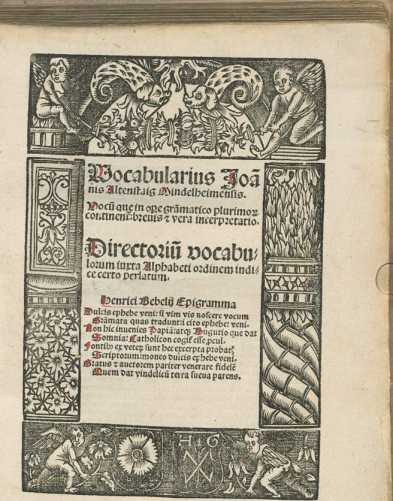 Vocabularius Joā
nis Altenstaig Mindelheimensis.
Vocū que in ope grāmatico plurimoꝝ
continent: breuis ⁊ vera interpretatio.
Directoriū vocabu-
lorum iuxta Alphabeti ordinem indi-
ce certo perlatum.
Henrici Bebelij Epigramma
Dulcis ephebe veni: si vim vis noscere vocum
Grāmata quas tradunt: a cito ephebe veni.
Non hic inuenies Papiā: atqꝫ Hugutio que dat
Somnia: Catholicon esse
Fontibꝰ ex veteꝝ sunt hec excerpta
Scriptorum: moneo dulcis ephebe veni.
Gratus ⁊ auctorem pariter venerare fidelē
Quem dat vindelicū terra sueua parens.
H G